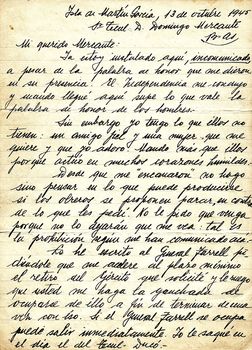 Isla de Martín García, 13 de octubre 1945
Sr. Tcnel. D. Domingo Mercante
Bs. As.
Mi querido Mercante:
Ya estoy instalado aquí incomunicado
a pesar de la palabra de honor que me dieron
en su presencia. El Independencia me condujo
y cuando llegué aquí supe lo que vale la
palabra de honor de los hombres.
Sin embargo yo tengo lo que ellos no
tienen: un amigo fiel y una mujer que me
quiere y que yo adoro. Mando más que ellos
porque actúo en muchos corazones humildes.
Desde que me "encanaron" no hago
sino pensar en lo que puede producirse
si los obreros se proponen parar en contra
de lo que les pedí. No le pido que venga
porque no lo dejarán que me vea: tal es
la prohibición según me han comunicado acá.
Le he escrito al General Farrell pi-
diéndole que me acelere el plazo mínimo
el retiro del Ejército que solicité y le ruego
que usted me haga la gauchada de
ocuparse de ello a fin de terminar de una
vez con eso. Si el General Farrell se ocupa
puede salir inmediatamente. Yo le saqué en
el día el del Tcnel. Ducó.